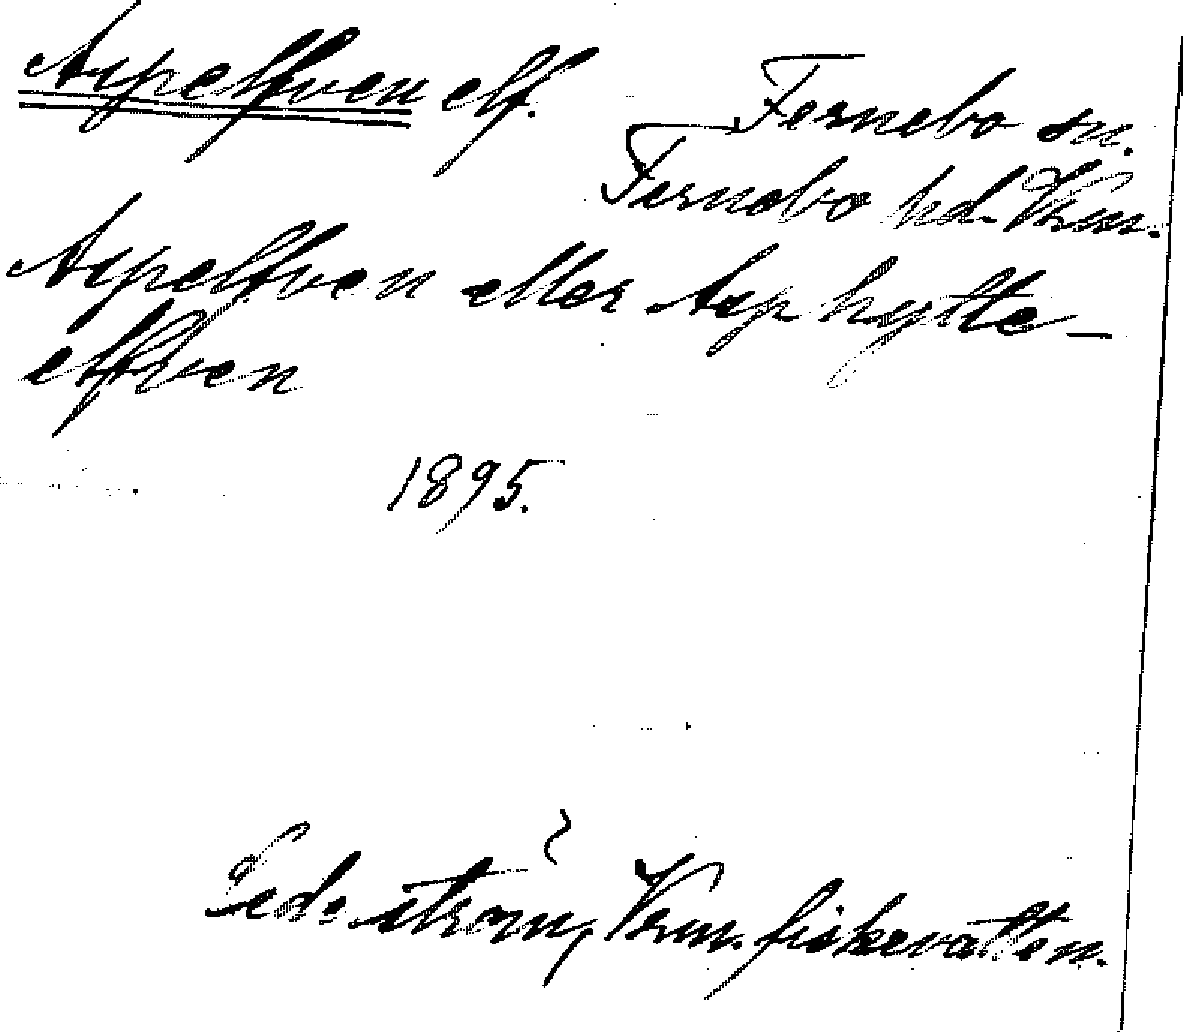 Aspelfven elf.
Fernebo sn.
Fernebo hd. Vrm.
Aspelfven eller Asphytte-
elfven
1895.
Cederström, Verm. fiskevatten.